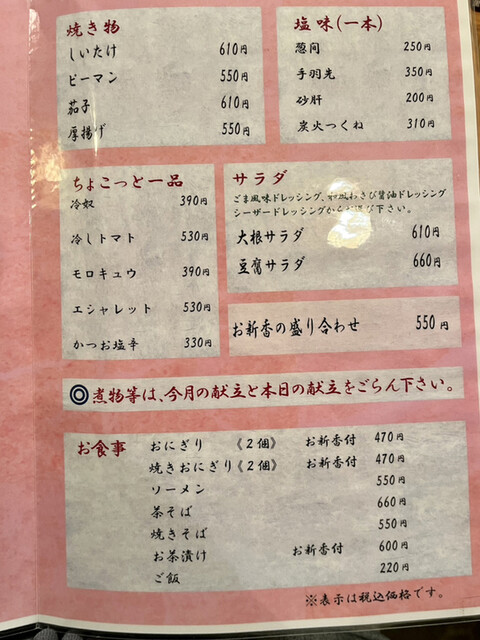 焼き物
しいたけ 610円
ピーマン 550円
茄子 610円
厚揚げ 550円
塩味(一本)
葱間 250円
手羽先 350円
砂肝 200円
炭火つくね 310円
ちょこっと一品
冷奴 390円
冷しトマト 530円
モロキュウ 390円
エシャレット 530円
かつお塩辛 330円
サラダ
ごま風味ドレッシング、和風わさび醤油ドレッシング
シーザードレッシングからお選び下さい。
大根サラダ 610円
豆腐サラダ 660円
お新香の盛り合わせ 550円
◎煮物等は、今月の献立と本日の献立をごらん下さい。
お食事
おにぎり 《2個》 お新香付 470円
焼きおにぎり《2個》 お新香付 470円
ソーメン 550円
茶そば 660円
焼きそば 550円
お茶漬け お新香付 600円
ご飯 220円
※表示は税込価格です。